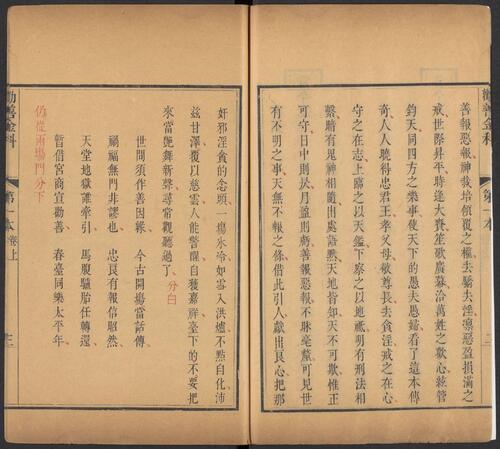 勸善金科
第一本
二
善報惡報神栽培傾覆之權去驕去淫凛惡盈損滿之
戒世際昇平時逢大賚笙歌廣幕洽萬姓之歡心絃管
鈞天同四方之樂事使天下的愚夫愚婦看了這本傳
奇人人曉得忠君王孝父母敬尊長去貪淫戒之在心
守之在志上臨之以天鑑下察之以地祇明有刑法相
繫暗有鬼神相隨出處語默天地皆知天不可欺惟正
可守日中則昃月盈則虧善報惡報不眛毫釐可見世
有不明之事天無不報之條借此引人獻出良心把那
奸邪淫貪的念頭一場氷冷如雪入洪爐不㸃自化沛
茲甘澤覆以慈雲人能警醒自獲嘉祥臺下的不要把
來當艶舞新聲尋常觀聽過了分白
世間須作善因縁 今古開塲當話傳
禍福無門非謬也 忠良有報信昭然
天堂地獄誰牽引 馬腹驢胎任轉還
暫借宮商宣勸善 春臺同樂太平年
仍從兩塲門分下
勸善金科
第一本卷上
三